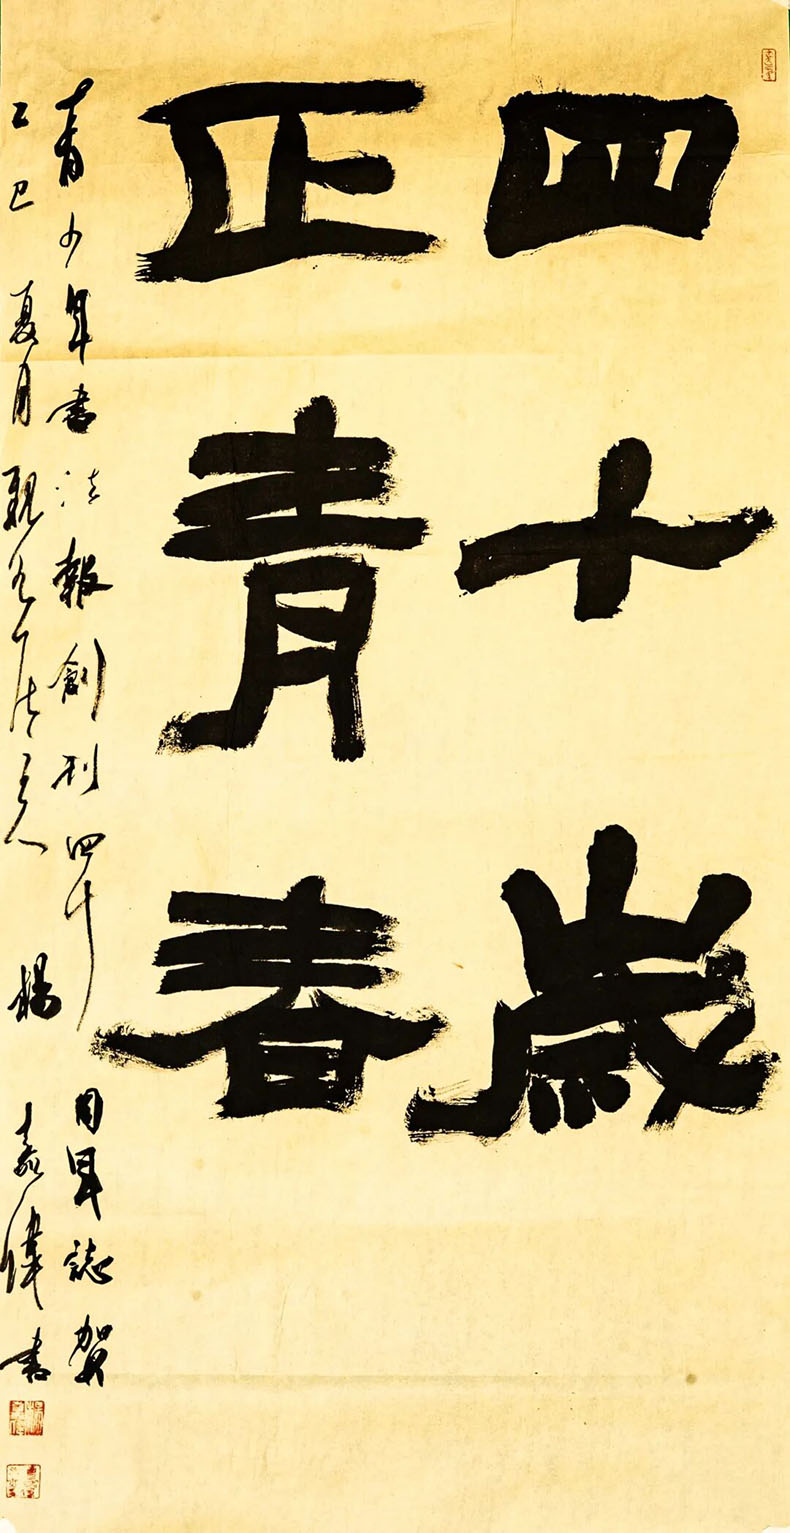 四十歲
正青春
青少年書法報創刊四十周年誌賀
乙巳夏月 楊嘉偉書